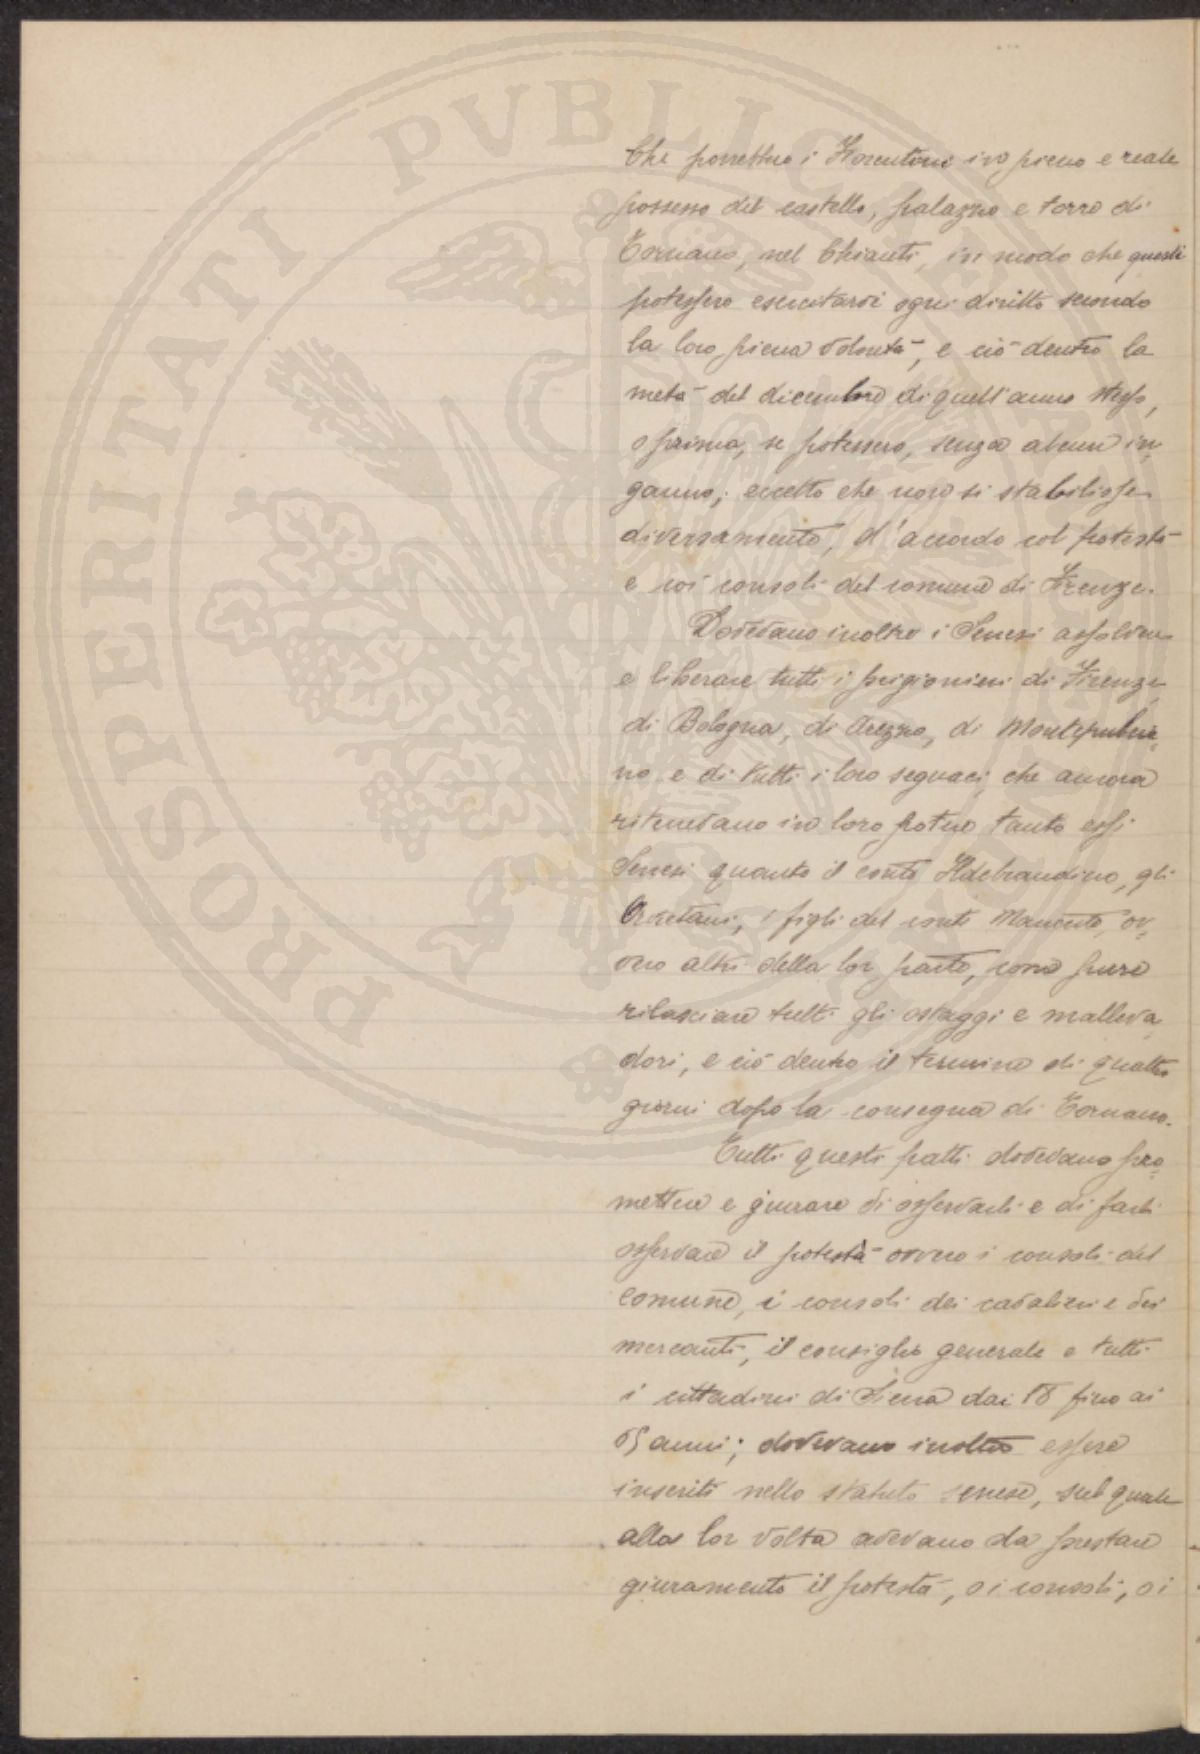 PROSPERITATI PVBLICAE
Che porrebbero i Fiorentini in pieno e reale
possesso del castello, palazzo e torre di
Tornano, nel Chianti, in modo che questi
potessero esercitarvi ogni diritto secondo
la loro piena volontà, e ciò dentro la
metà del dicembre di quell'anno stesso,
o prima, se potessero, senza alcun in-
ganno; eccetto che non si stabilisse
diversamente, d'accordo col potestà
e coi consoli del comune di Firenze.
Dovevano inoltre i Senesi assolvere
e liberare tutti i prigionieri di Firenze,
di Bologna, di Arezzo, di Montepulcia-
no e di tutti i loro seguaci, che ancora
ritenevano in loro potere tanto essi
Senesi quanto il conte Ildebrandino, gli
Orvietani, i figli del conte Manente, ov-
vero altri della lor parte, come pure
rilasciare tutti gli ostaggi e malleva-
dori, e ciò dentro il termine di quattro
giorni dopo la consegna di Tornano.
Tutti questi patti dovevano pro-
mettere e giurare di osservarli e di farli
osservare il potestà ovvero i consoli del
comune, i consoli dei cavalieri e dei
mercanti, il consiglio generale e tutti
i cittadini di Siena dai 18 fino ai
65 anni; dovevano inoltre essere
inseriti nello statuto senese, sul quale
alla lor volta avevano da prestare
giuramento il potestà, o i consoli, o i